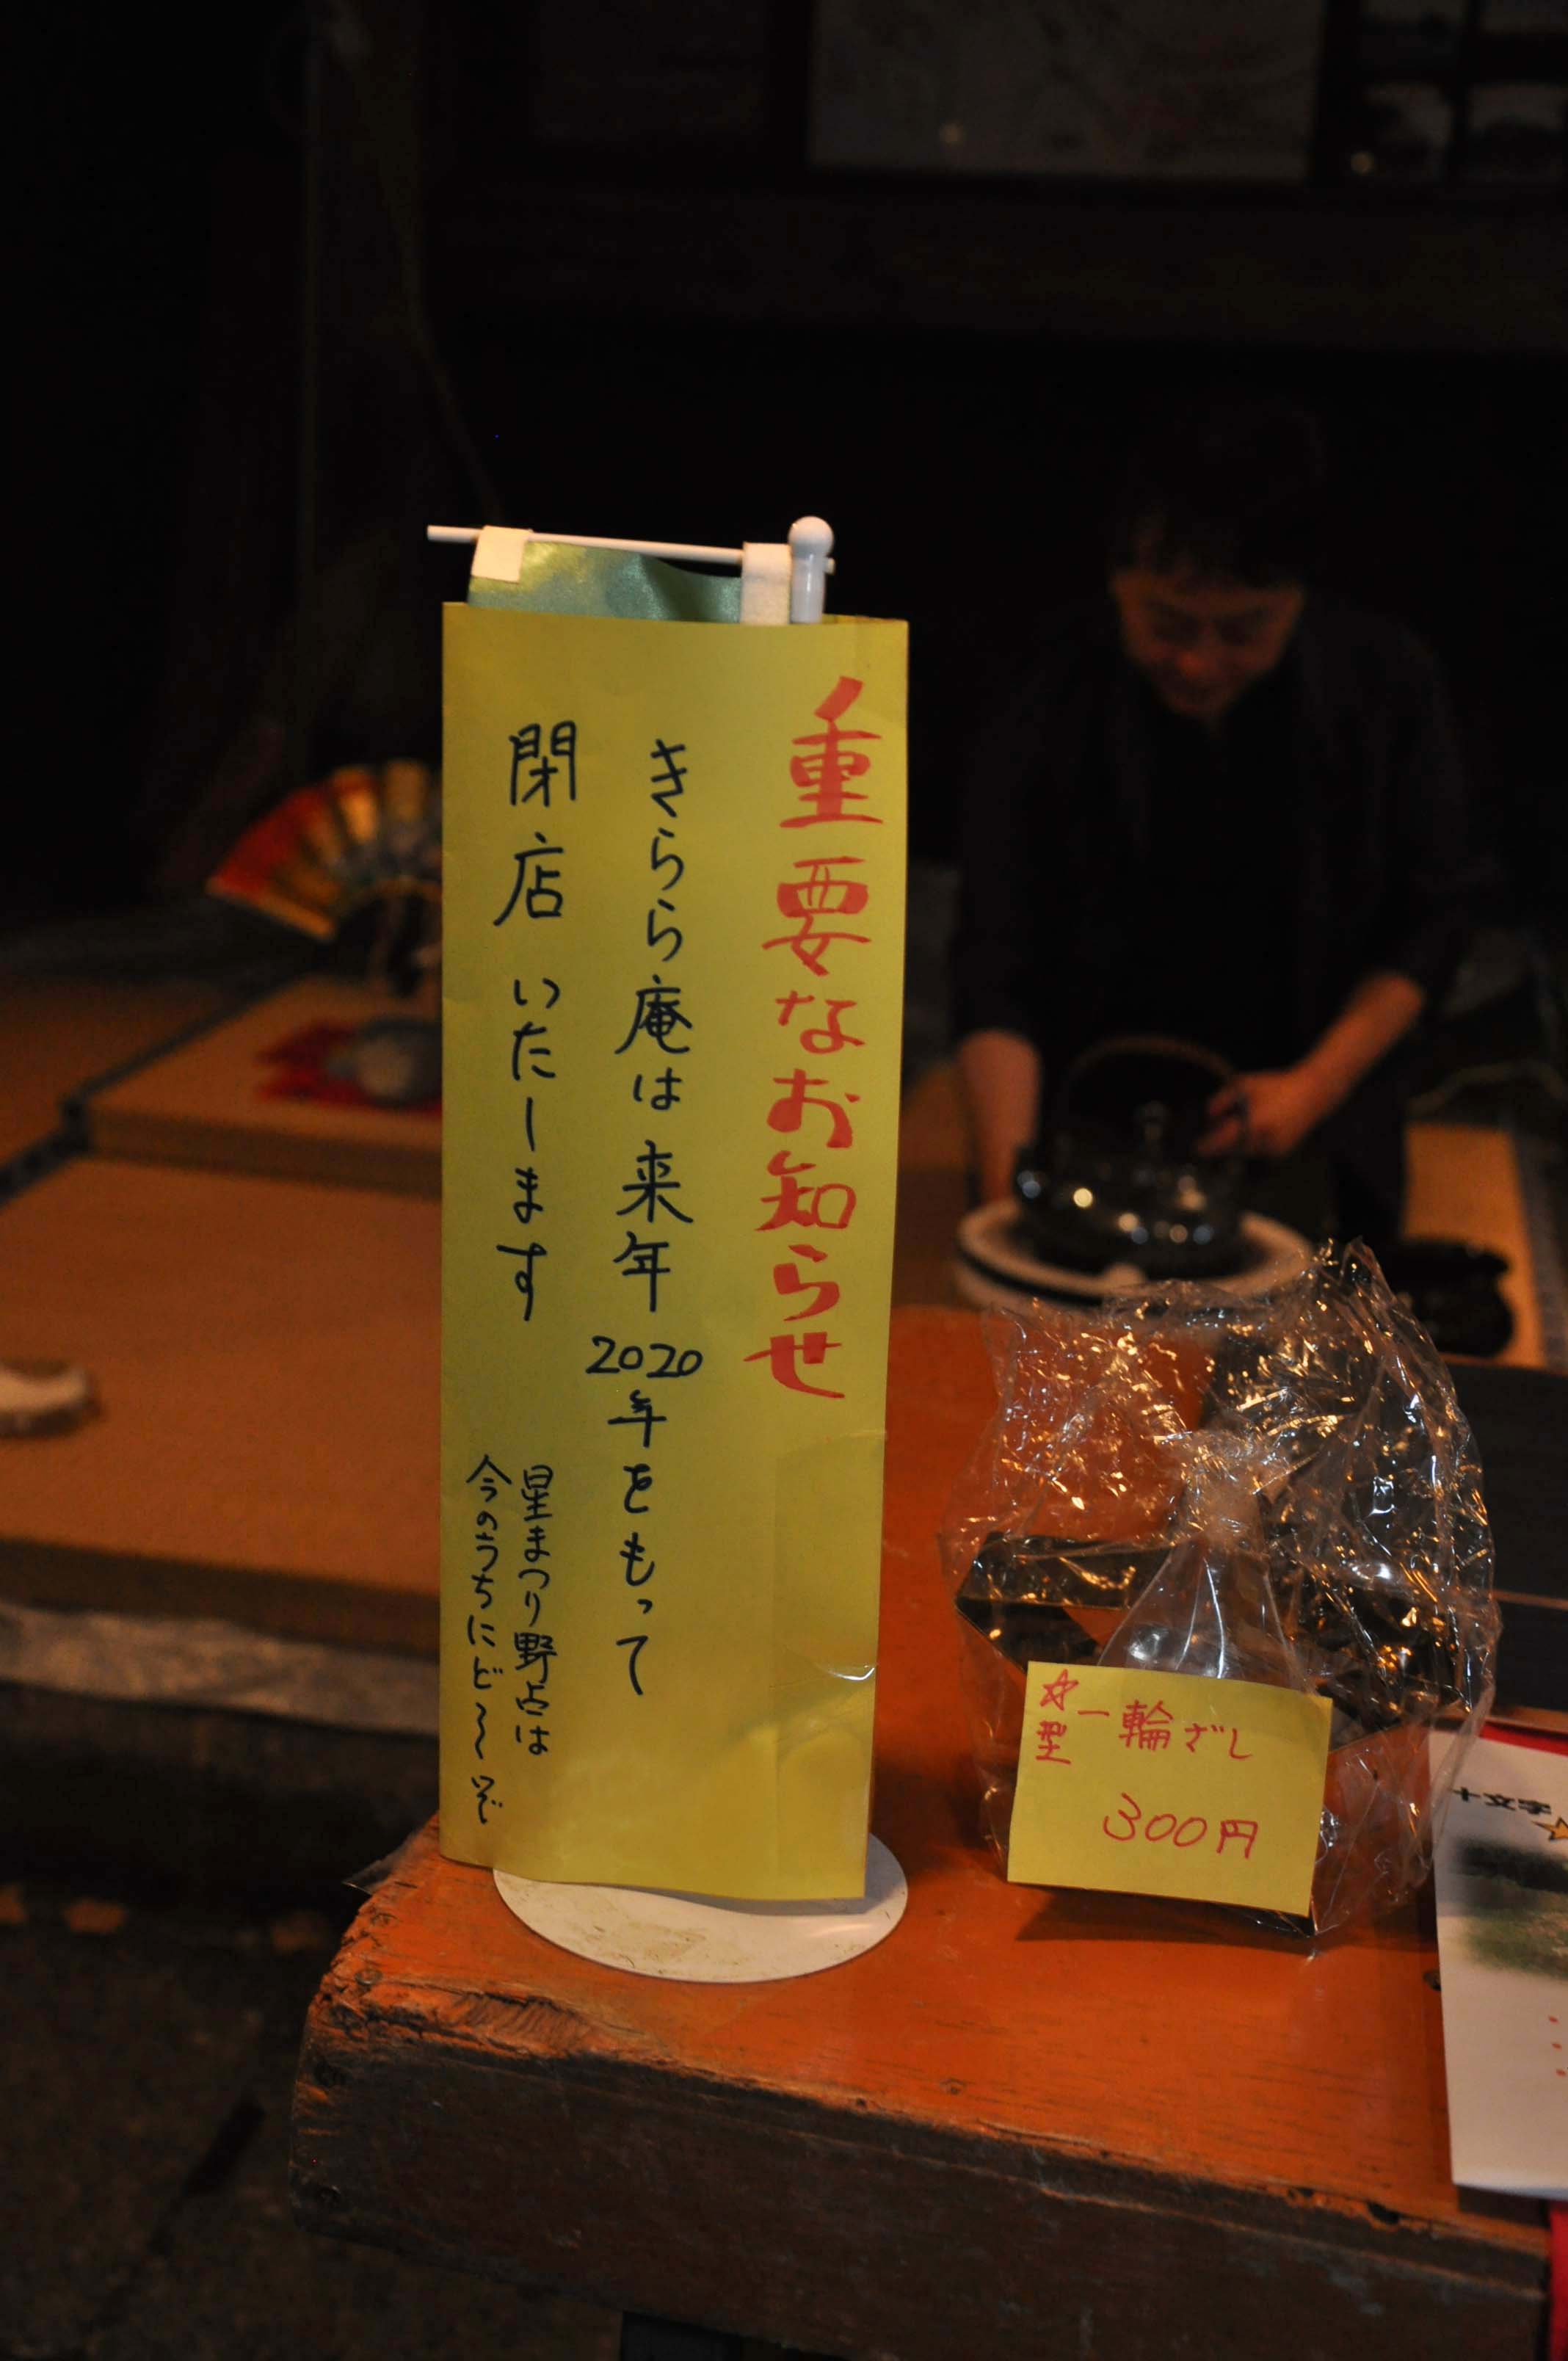 重要なお知らせ
きらら庵は来年2020年をもって
閉店いたします
星まつり野点は
今のうちにど〜ぞ
☆型一輪ざし
300円
十文字